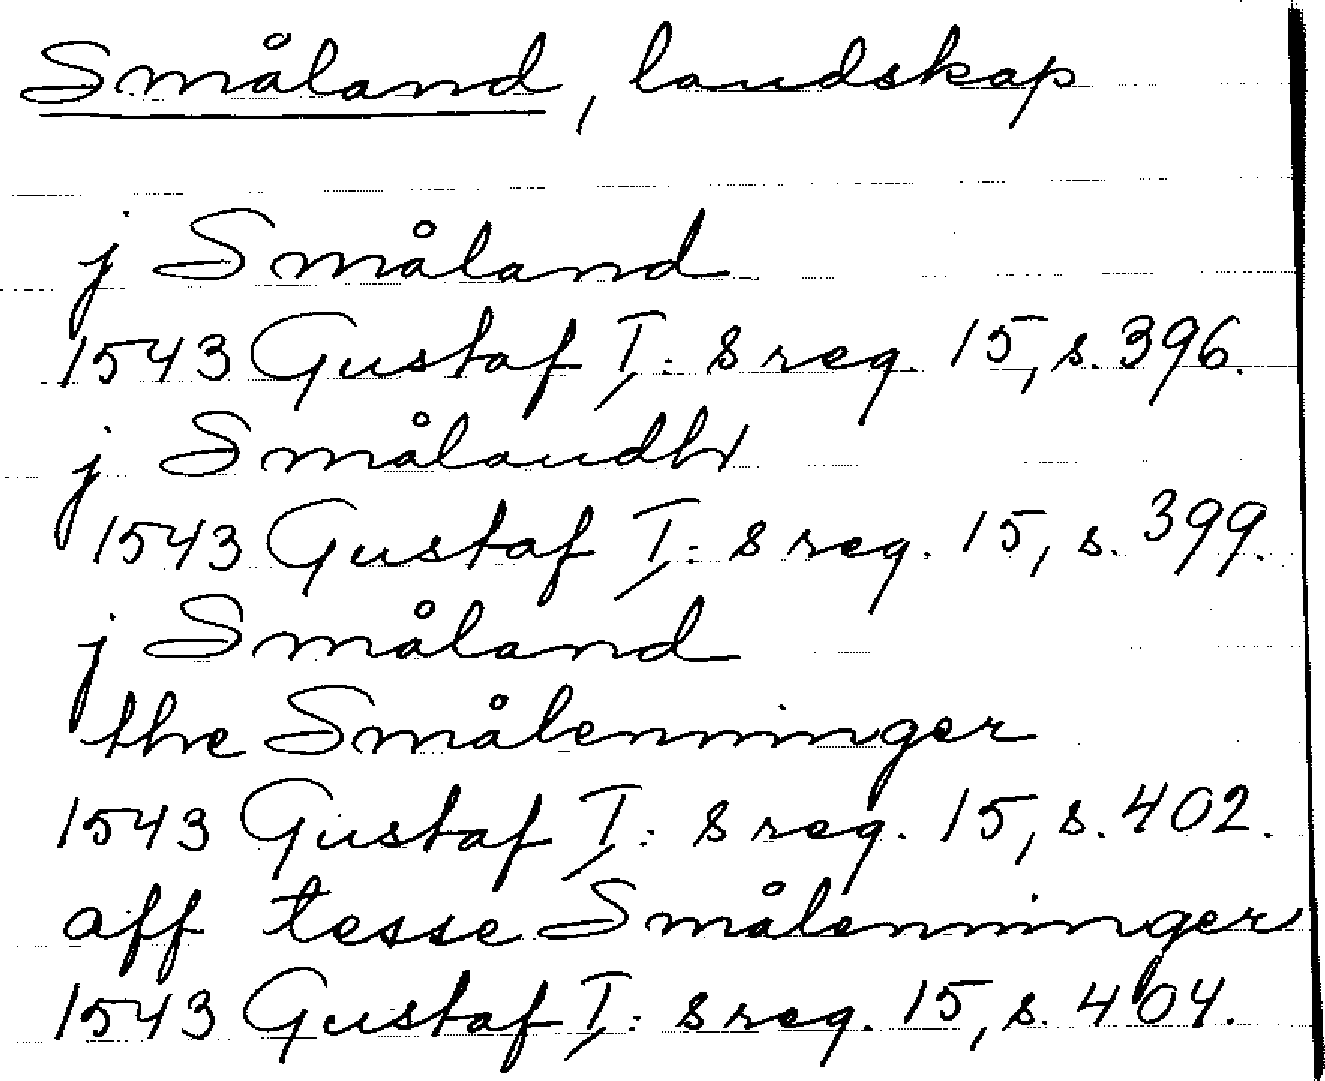 Småland, landskap
j Småland
1543 Gustaf I: s reg. 15, s. 396.
j Smålandh
1543 Gustaf I: s reg. 15, s. 399.
j Småland
the Smålenninger
1543 Gustaf I: s reg. 15, s. 402.
aff tesse Smålenninger
1543 Gustaf I: s reg. 15, s. 404.